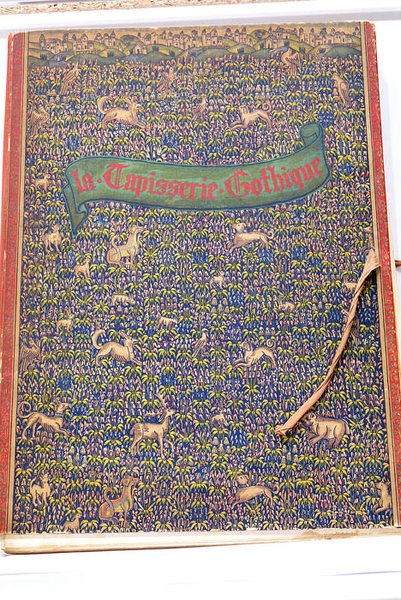 la · Tapisserie · Gothique